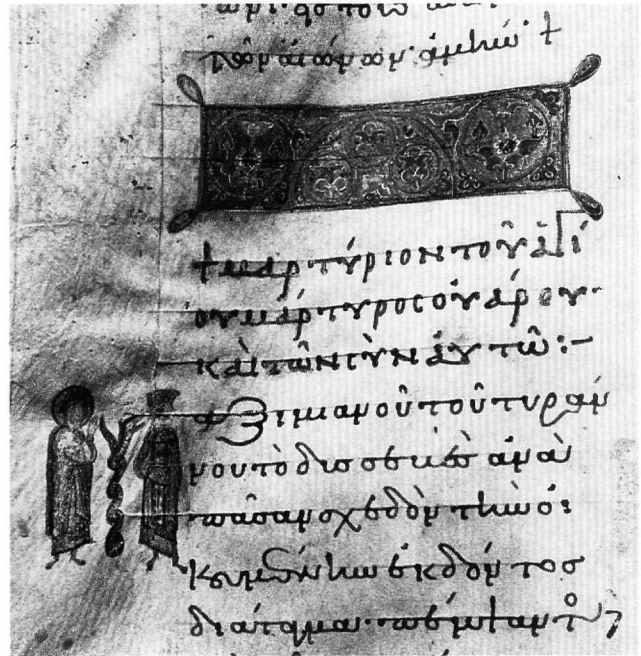 τῶν αἰώνων. ἀμήν +
+ μαρτύριον τοῦ ἁγί
ου μάρτυρος οὐάρου·
καὶ τῶν σὺν αὐτῶ:–
Μαξιμιανοῦ τοῦ τυράν
νου τὸ δυσσεβὲς ἀνὰ
πᾶσαν σχεδὸν τὴν οἰ
κουμένην ἐκδόντος
διάταγμα·